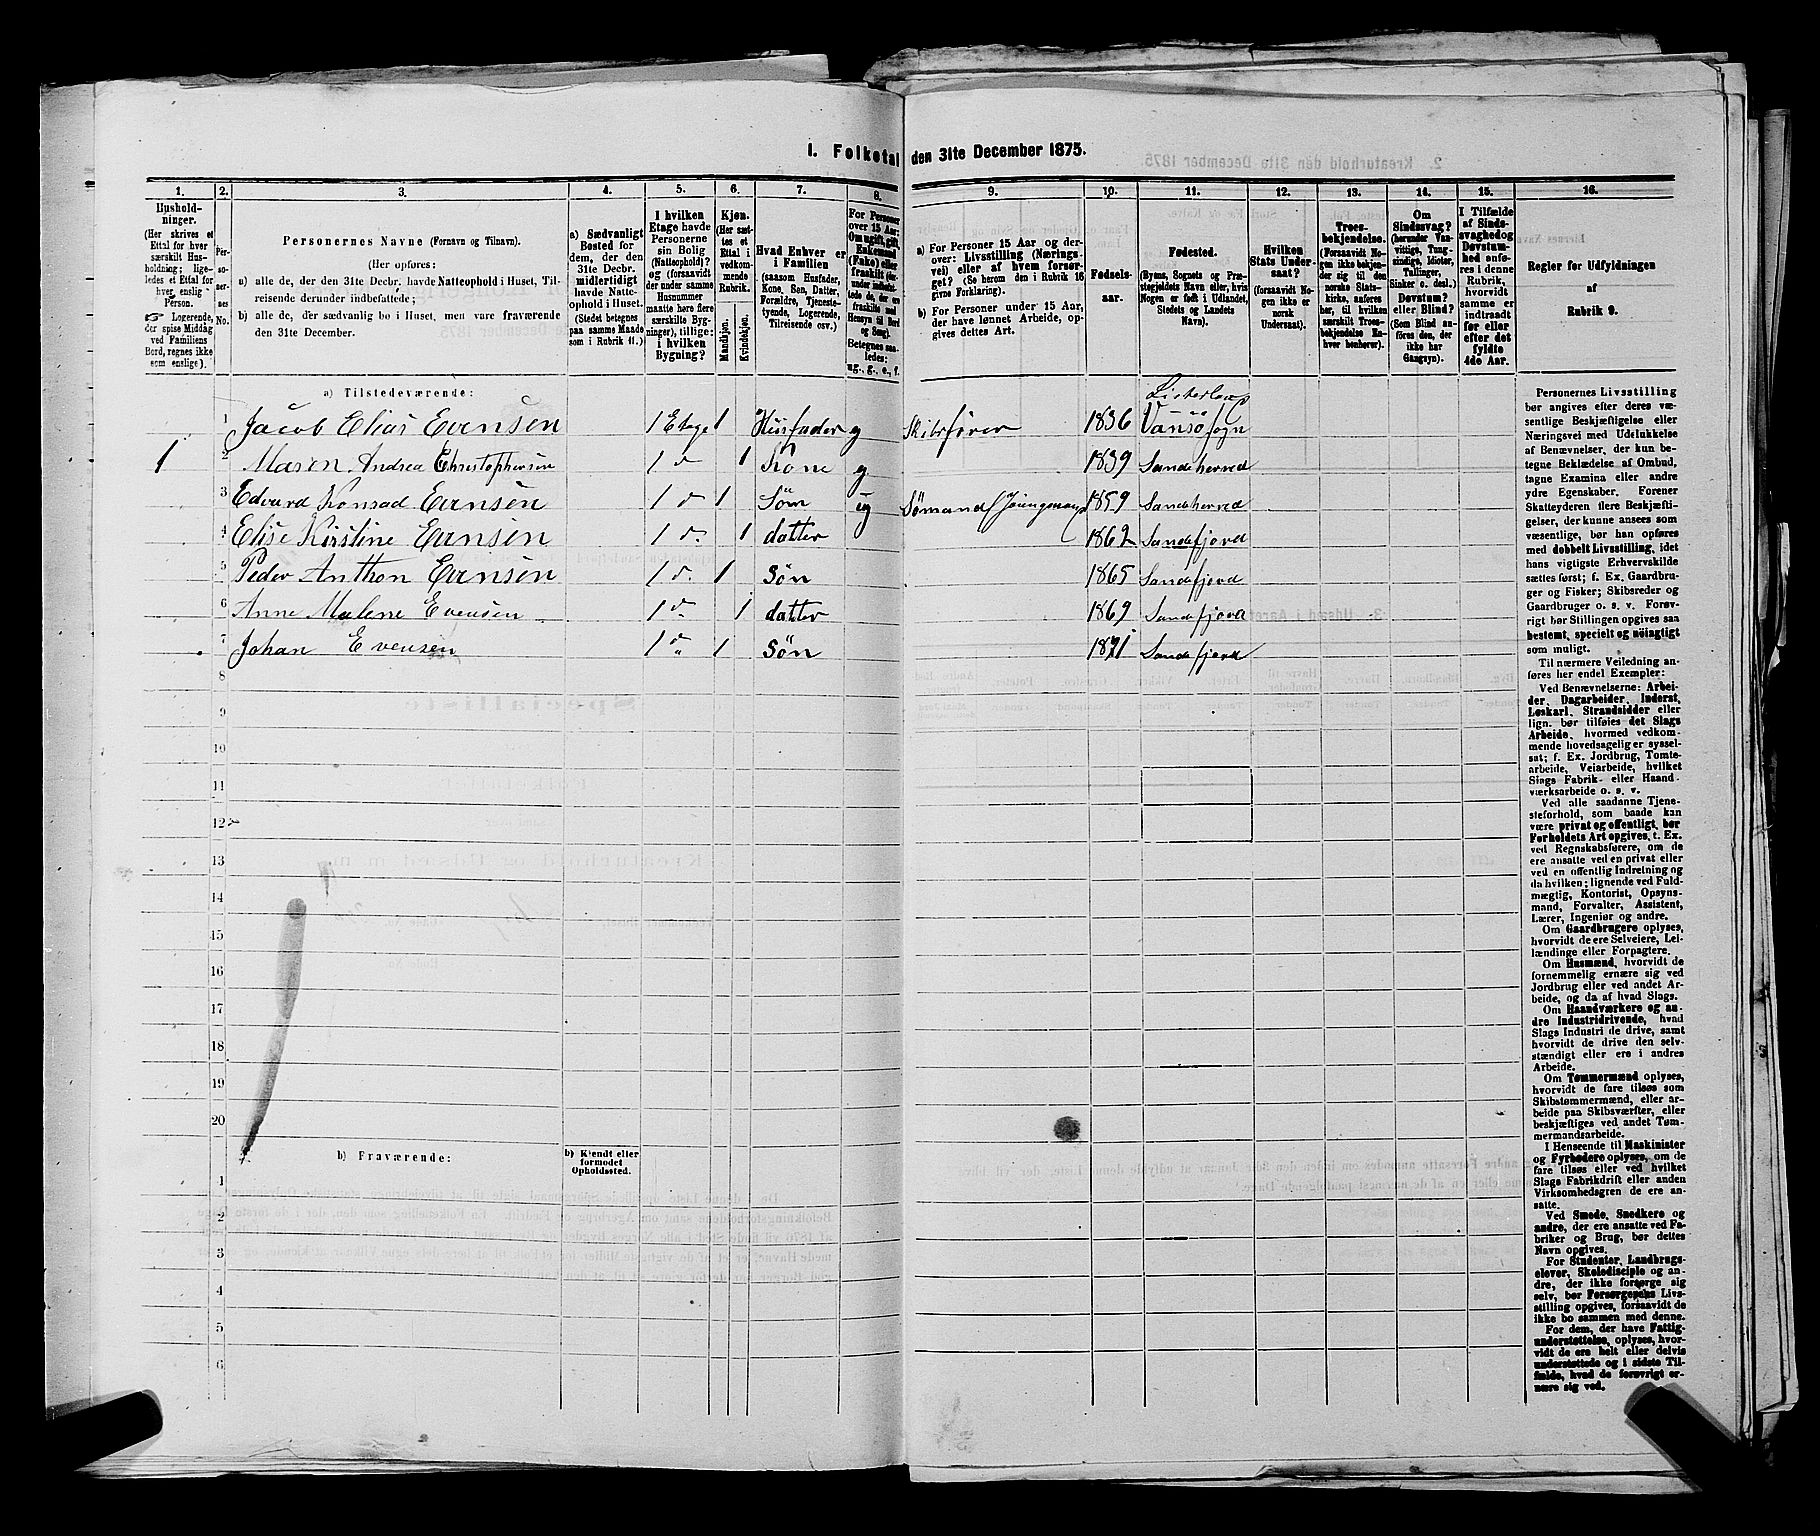 1. Folketal den 31te December 1875.
1. 2. 3. 4. 5. 6. 7. 8. 9. 10. 11. 12. 13. 14. 15. 16.
Hushold-
ninger.
(Her skrives et
Ettal for hver
særskilt Hus-
holdning; lige-
ledes et Ettal for
hver enslig
Person.
☞ Logerende,
der spise Middag
ved Familiens
Bord, regnes ikke
som enslige).
Per-
so-
ner-
nes
No.
Personernes Navne (Fornavn og Tilnavn).
(Her opføres:
a) alle de, der den 31te Decbr. havde Natteophold i Huset, Til-
reisende derunder indbefattede;
b) alle de, der sædvanlig bo i Huset, men vare fraværende
den 31te December.
a) Sædvanligt
Bosted for
dem, der den
31te Decbr.
midlertidigt
havde Natte-
ophold i Huset.
(Stedet betegnes
paa samme Maade
som i Rubrik 11.)
I hvilken
Etage havde
Personerne
sin Bolig
(Natteophold)?
og (forsaavidt
der under samme
Husnummer
maatte høre flere
særskilte Byg-
ninger), tillige:
i hvilken
Bygning?
Kjøn.
(Her sæt-
tes et
Ettal i
vedkom-
mende
Rubrik.
Mandkjøn.
Kvindekjøn.
Hvad Enhver er
i Familien
(saasom Husfader,
Kone, Søn, Datter,
Forældre, Tjeneste-
tyende, Logerende,
Tilreisende osv.)
For Personer
over 15 Aar:
Om ugift, gift,
Enkemand
(Enke) eller
fraskilt
Betegnes saa-
ledes:
ug., g., e., f.
a) For Personer 15 Aar og der-
over: Livsstilling (Nærings-
vei) eller af hvem forsør-
get? (Se herom den i Rubrik 16
givne Forklaring).
b) For Personer under 15 Aar,
der have lønnet Arbeide, op-
gives dettes Art.
Fødsels-
aar.
Fødested.
(Byens, Sognets og Præ-
stegjeldets Navn eller, hvis
Nogen er født i Udlandet,
Stedets og Landets
Navn).
Hvilken
Stats Under-
saat?
(forsaavidt No-
gen ikke er
norsk
Undersaat).
Troes-
bekjendelse.
(Forsaavidt No-
gen ikke bekjen-
der sig til den
norske Stats-
kirke, anføres
her, til hvilken
særskilt Troes-
bekjendelse En-
hver henhører).
Om
Sindssvag?
(herunder Van-
vittige, Tung-
sindige, Idioter,
Tullinger,
Sinker o. desl.)
Døvstum?
eller Blind?
(Som Blind an-
føres den, der
ikke har
Gangsyn).
I Tilfælde
af Sinds-
svaghed og
Døvstum-
hed anfø-
res i denne
Rubrik,
hvorvidt
samme er
indtraadt
før eller
efter det
fyldte
4de Aar.
Regler for Udfyldningen
af
Rubrik 9.
a) Tilstedeværende:
1 Jacob Elias Evensen 1 Etage 1 Husfader g Skibsfører 1836 Vansø sogn
1 2 Maren Andrea Christophersen 1 d 1 Kone g 1839 Sandeherred
3 Edvard Konrad Evensen 1 d 1 Søn ug Sømand (Jungmand) 1859 Sandeherred
4 Elise Kirstine Evensen 1 d. 1 datter 1862 Sandefjord
5 Peder Anthon Evensen 1 d. 1 Søn 1865 Sandefjord
6 Anne Malene Evensen 1 d 1 datter 1869 Sandefjord
7 Johan Evensen 1 d 1 Søn 1871 Sandefjord
8
9
10
11
12
13
14
15
16
17
18
19
20
b) Fraværende:
b) Kjendt eller
formodet
Opholdssted.
1
2
3
4
5
6
Personernes Livsstilling
bør angives efter deres væ-
sentlige Beskjæftigelse eller
Næringsvei med Udelukkelse
af Benævnelser, der kun be-
tegne Beklædelse af Ombud,
tagne Examina eller andre
ydre Egenskaber. Forener
Skatteyderen flere Beskjæfti-
gelser, der kunne ansees som
væsentlige, bør han opføres
med dobbelt Livsstilling, idet
hans vigtigste Erhvervskilde
sættes først; f. Ex. Gaardbru-
ger og Fisker; Skibsreder og
Gaardbruger o. s. v. Forøv-
rigt bør Stillingen opgives saa
bestemt, specielt og nøiagtigt
som muligt.
Til nærmere Veiledning an-
føres her endel Exempler:
Ved Benævnelserne: Arbei-
der, Dagarbeider, Inderst,
Løskarl, Strandsidder eller
lign. bør tilføies det Slags
Arbeide, hvormed vedkom-
mende hovedsagelig er syssel-
sat; f. Ex. Jordbrug, Tomte-
arbeide, Veiarbeide, hvilket
Slags Fabrik- eller Haand-
værksarbeide o. s. v.
Ved alle saadanne Tjene-
steforhold, som baade kan
være privat og offentligt, bør
Forholdets Art opgives, t. Ex.
ved Regnskabsførere, om de
ere ansatte ved en privat eller
ved en offentlig Indretning og
da hvilken; lignende ved Fuld-
mægtig, Kontorist, Opsyns-
mand, Forvalter, Assistent,
Lærer, Ingeniør og andre.
Om Gaardbrugere oplyses,
hvorvidt de ere Selveiere, Lei-
lændinge eller Forpagtere.
Om Husmænd, hvorvidt de
fornemmelig ernære sig ved
Jordbrug eller ved andet Ar-
beide, og da af hvad Slags.
Om Haandværkere og an-
dre Industridrivende, hvad
Slags Industri de drive, samt
hvorvidt de drive den selv-
stændigt eller ere i andres
Arbeide.
Om Tømmermænd oplyses,
hvorvidt de fare tilsøs som
Skibstømmermænd, eller ar-
beide paa Skibsværfter, eller
beskjæftiges ved andet Tøm-
mermandsarbeide.
I Henseende til Maskinister
og Fyrbødere oplyses, om de
fare tilsøs eller ved hvilket
Slags Fabrikdrift eller anden
Virksomhedsgren de ere an-
satte.
Ved Smede, Snedkere og
andre, der ere ansatte ved Fa-
briker og Brug, bør dettes
Navn opgives.
For Studenter, Landbrugs-
elever, Skoledisciple og an-
dre, der ikke forsørge sig
selv, bør Forsørgerens Livs-
stilling opgives, forsaavidt de
ikke bo sammen med denne.
For dem, der have Fattig-
understøttelse, oplyses, hvor-
vidt de ere helt eller delvis
understøttede og i sidste Til-
fælde, hvad de forøvrigt er-
nære sig ved.